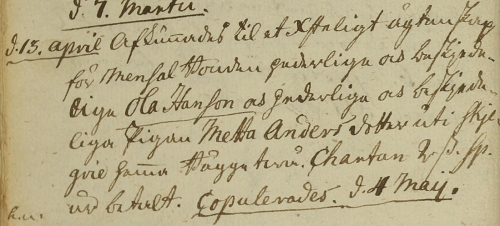 d. 7. Martii.
d. 13. April Afkunnades til et Xsteligt ägtenskap
för Mensal bonden hederlige os beskjede-
lige Ola Hanson os hederlige os beskjede-
liga Pigan Metta Anders dotter uti Skje-
grie hema bägge två. Chartan
ur betalt. Copulerades. d. 4 Maij.